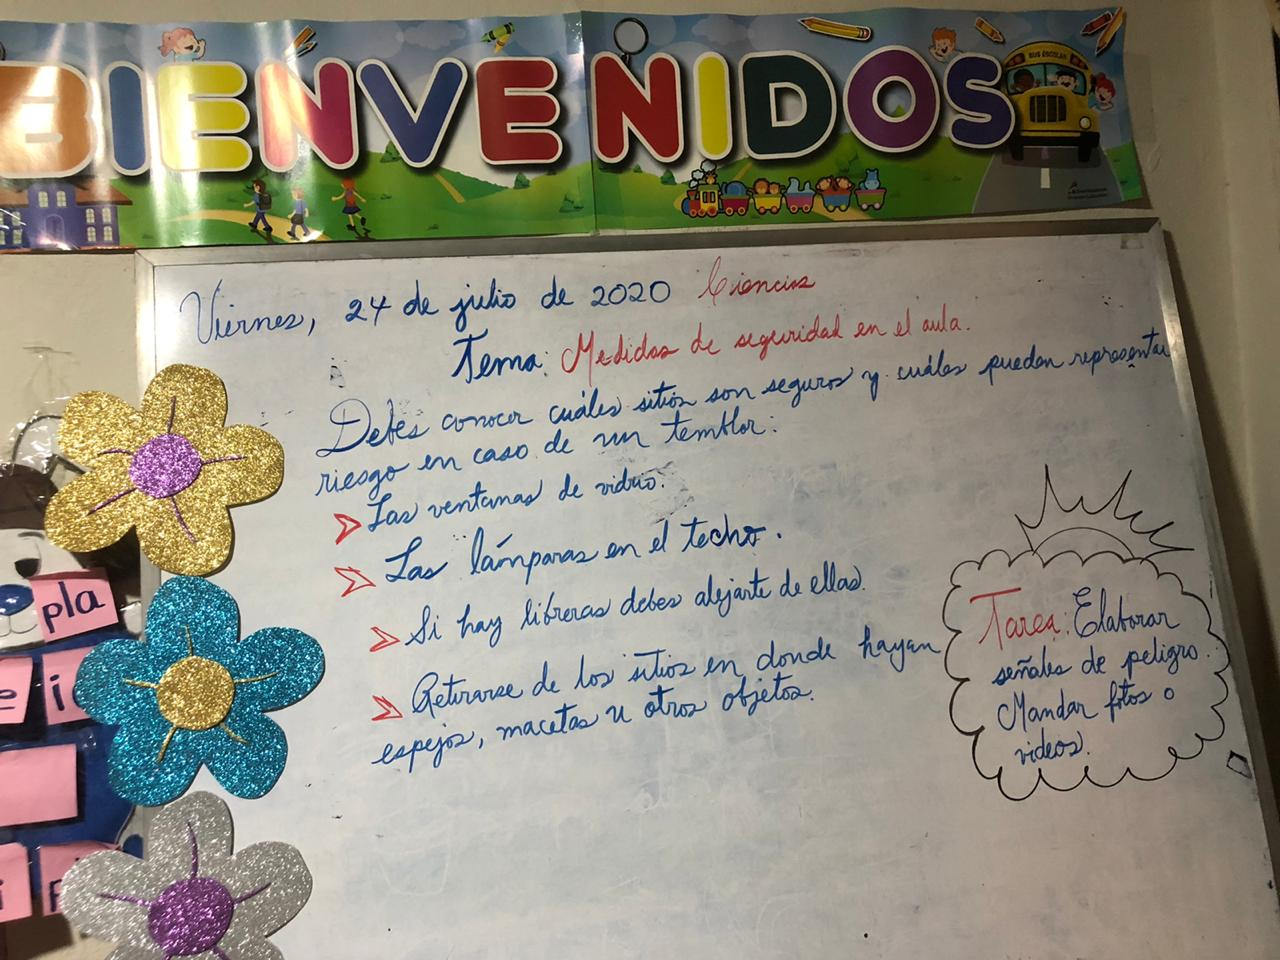 BIENVENIDOS
BUS ESCOLAR
Viernes, 24 de julio de 2020 Ciencias
Tema: Medidas de seguridad en el aula.
Debes conocer cuáles sitios son seguros y cuáles pueden representar
riesgo en caso de un temblor:
Las ventanas de vidrio.
Las lámparas en el techo.
Si hay libreras debes alejarte de ellas.
Retirarse de los sitios en donde hayan
espejos, macetas u otros objetos.
Tarea: Elaborar
señales de peligro.
Mandar fotos o
videos.
pla
e i
i